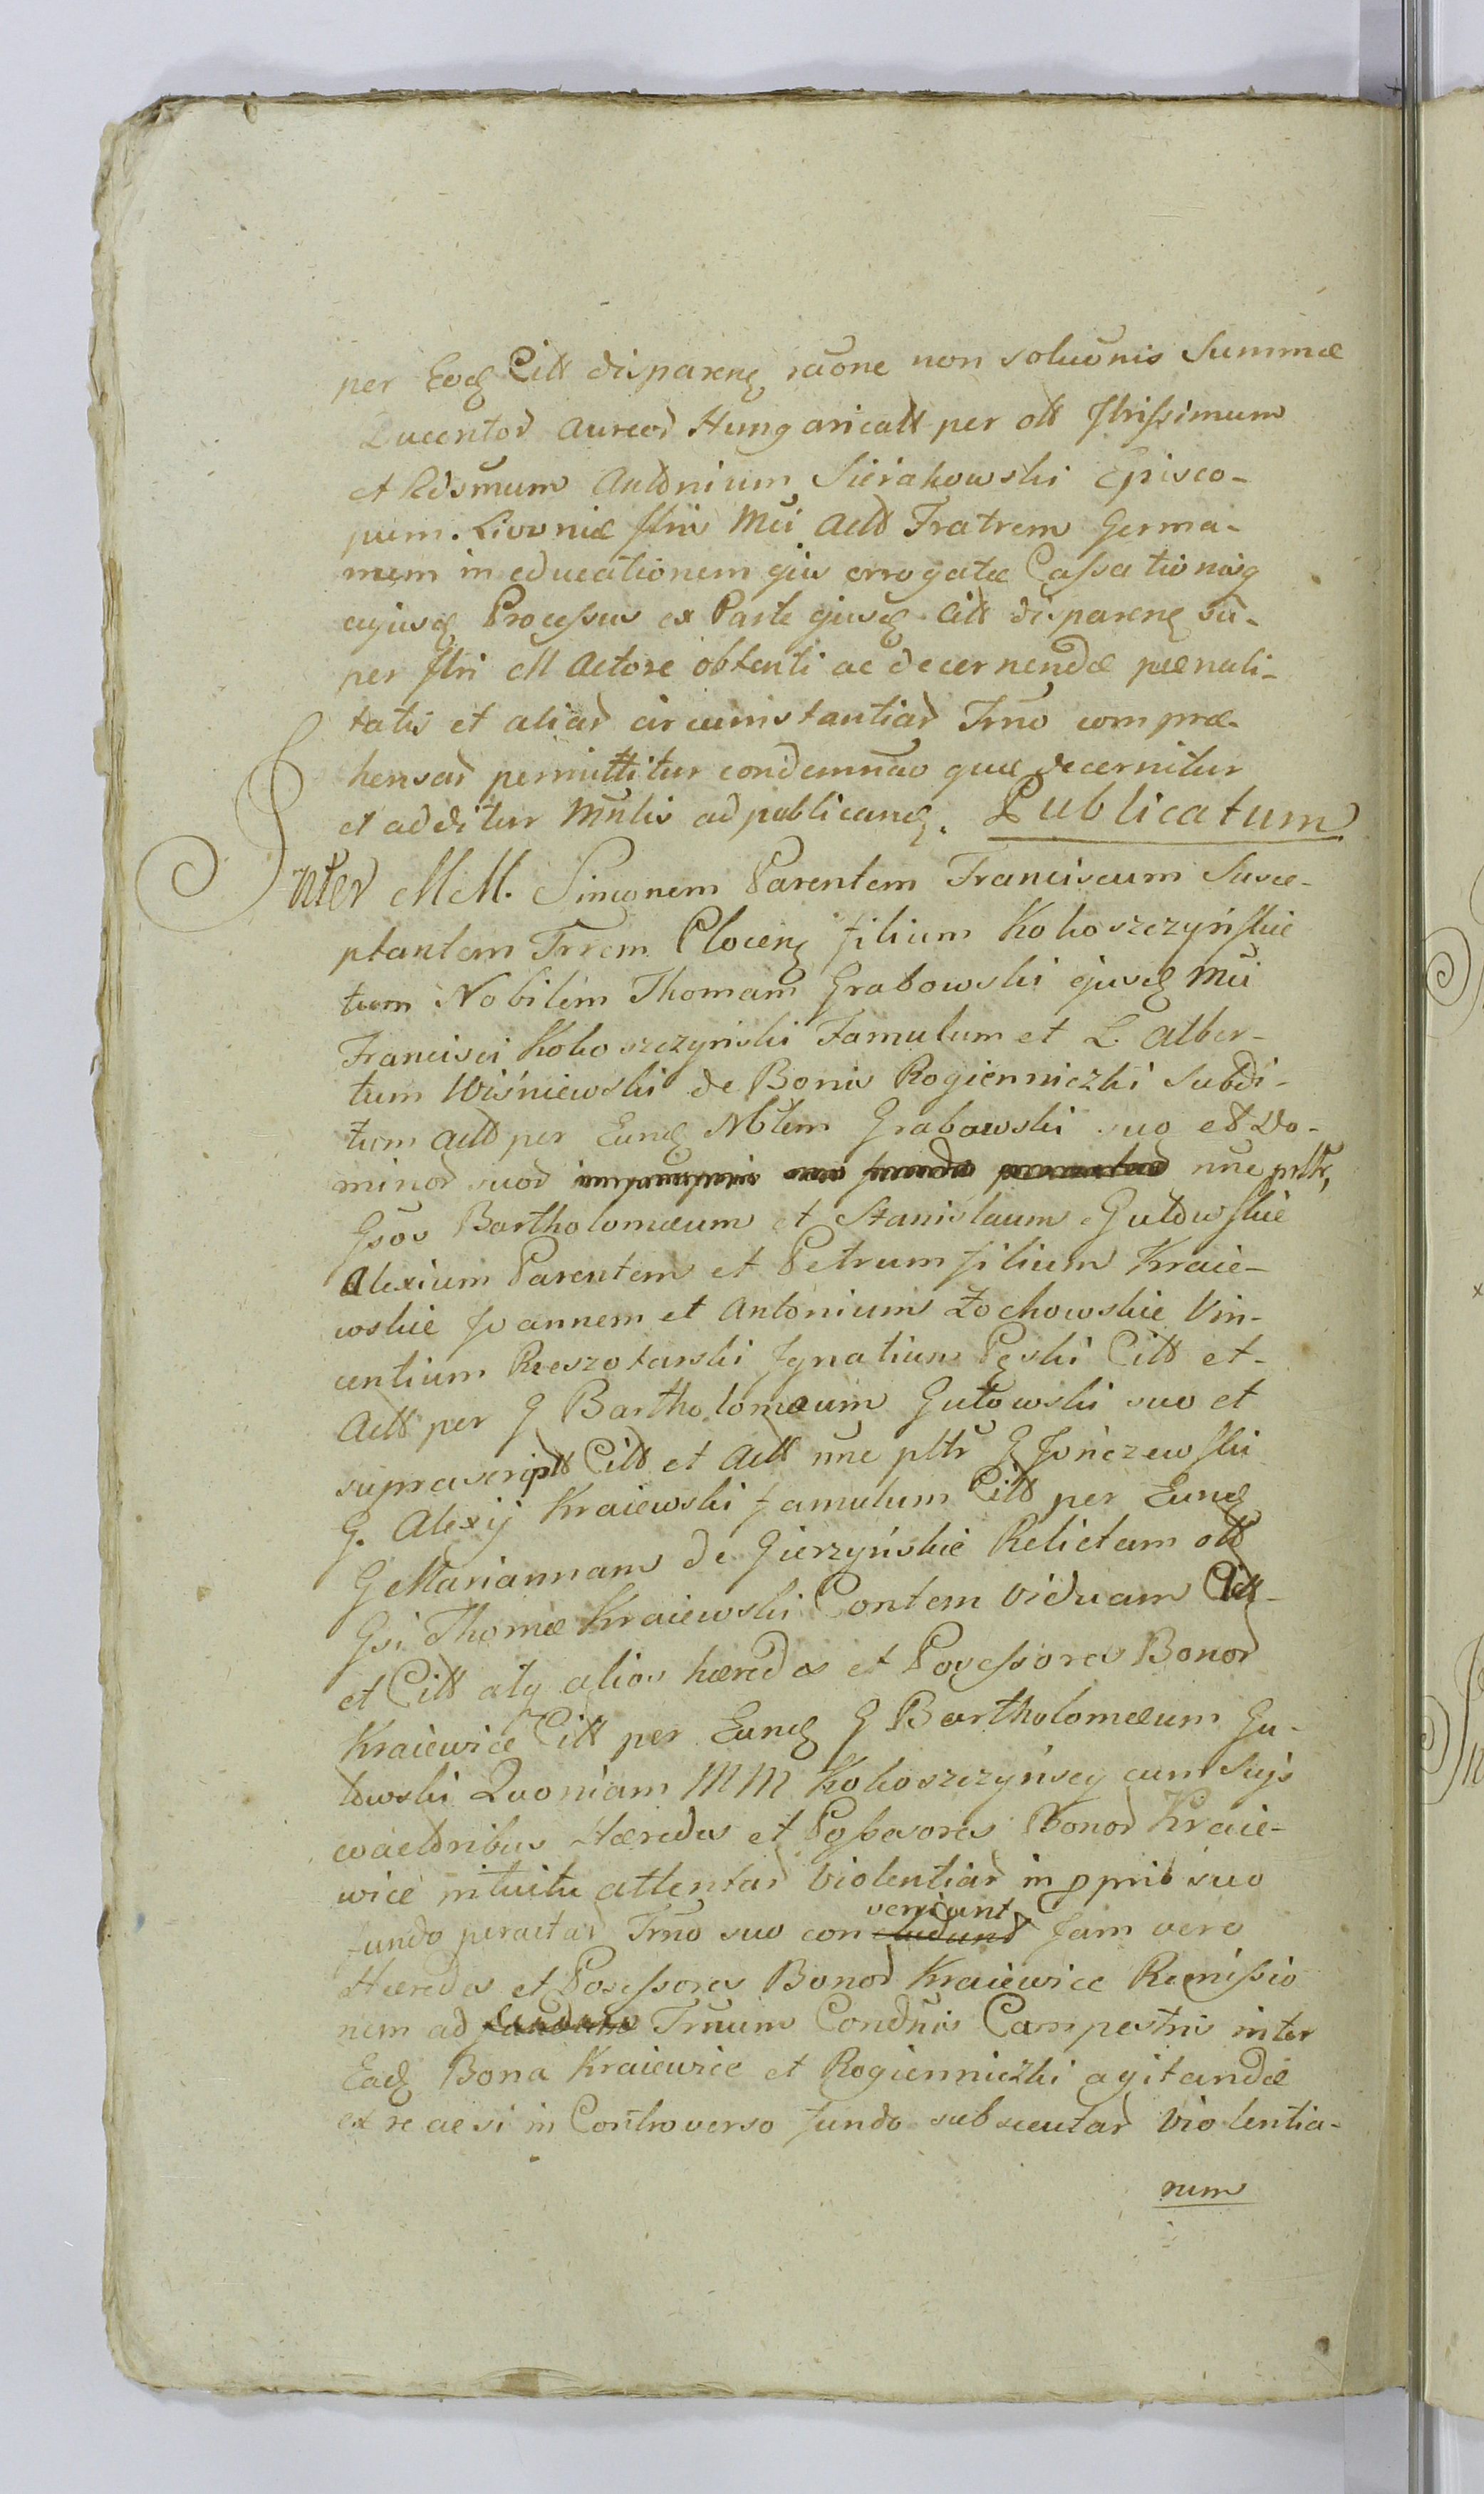 per Eod Citt disparen raone non soluonis Summæ
Ducentor aureor Hungaricalt per olt Jllrissimum
et Rdsmum Antonium Sierakowski Episco-
pum Livoniæ Jllris Mci Actt Fratrem Germa-
num in educationem ejus errogatæ Cassationisq
cujusq Processus ex Parte ejusd Citt disparen su-
per Jllri M Actore obtenti ac decernendæ pænali-
tatis et aliar circumstantiar Trno compræ-
hensar permittitur condemnao quæ decernitur
et additur Mnlis ad publicand. Publicatum
Inter MM. Simonem Parentem Franciscum Susce-
ptantem Trrem Plocen filium Kokoszczyńskie
tum Nobilem Thomam Grabowski ejusd Mci
Francisci Kokoszczyński Famulum et L. Alber-
tum Wiśniewski de Bonis Rogienniczki Subdi-
tum Actt per Eund Nblem Grabowski suo et Do-
minor suor nne pltr,
Gsos Bartholomæum et Stanislaum Gutowskie
Alexium Parentem et Petrum filium Kraie-
wskie Joannem et Antonium Żochowskie Vin-
centium Reszotarski Jgnatium Pęski Citt et
Actt per G Bartholomæum Gutowski suo et
suprascriptt Citt et Actt nne pltr G Jończewski
G. Alexij Kraiewski famulum Citt per Eund
G Mariannam de Gierzyńskie Relictam olt
Gsi Thomæ Kraiewski Contem viduam Citt
et Citt atq alios hæredes et Possessores Bonor
Kraiewice Citt per Eund G Bartholomæum Gu-
towski Quoniam MM Kokoszczyńscy cum Suis
coactoribus Hæredes et Possessores Bonor Kraie-
wice intuitu attentar violentiar in pprio suo
fundo peractar Trno suo con cludunt veniunt Jam vero
Hæredes et Possessores Bonor Kraiewice Remissio
nem ad fundum Trnum Condnis Campestris inter
Ead Bona Kraiewice et Rogienniczki agitandæ
ex re ac si in Controverso fundo subsecutar violentia-
rum